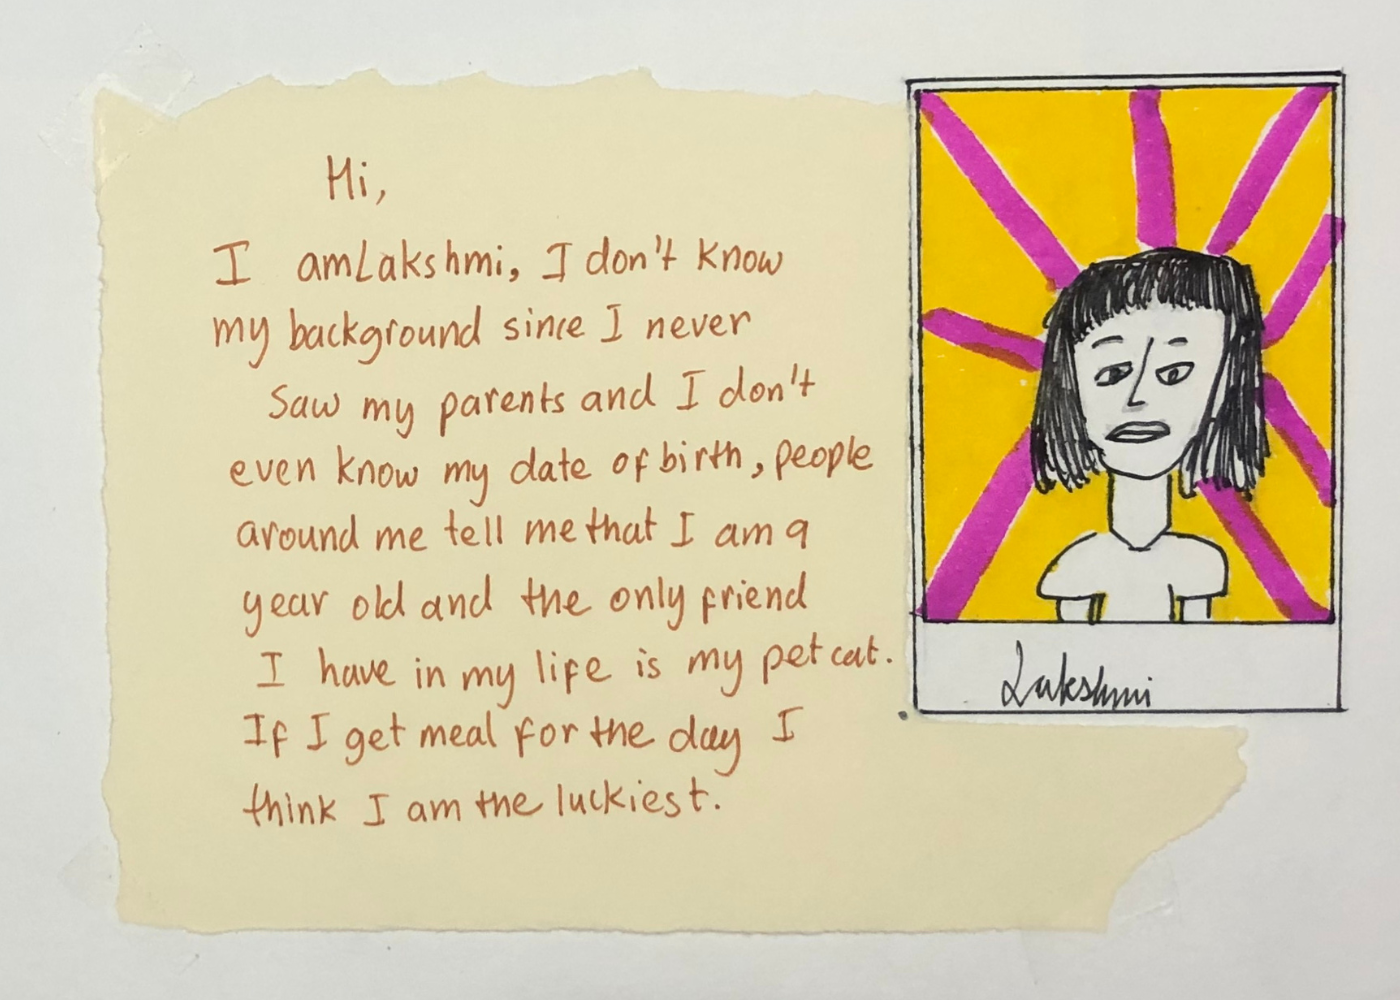 Hi,
I am Lakshmi, I don't know
my background since I never
saw my parents and I don't
even know my date of birth, people
around me tell me that I am 9
year old and the only friend
I have in my life is my pet cat.
If I get meal for the day I
think I am the luckiest.
Lakshmi